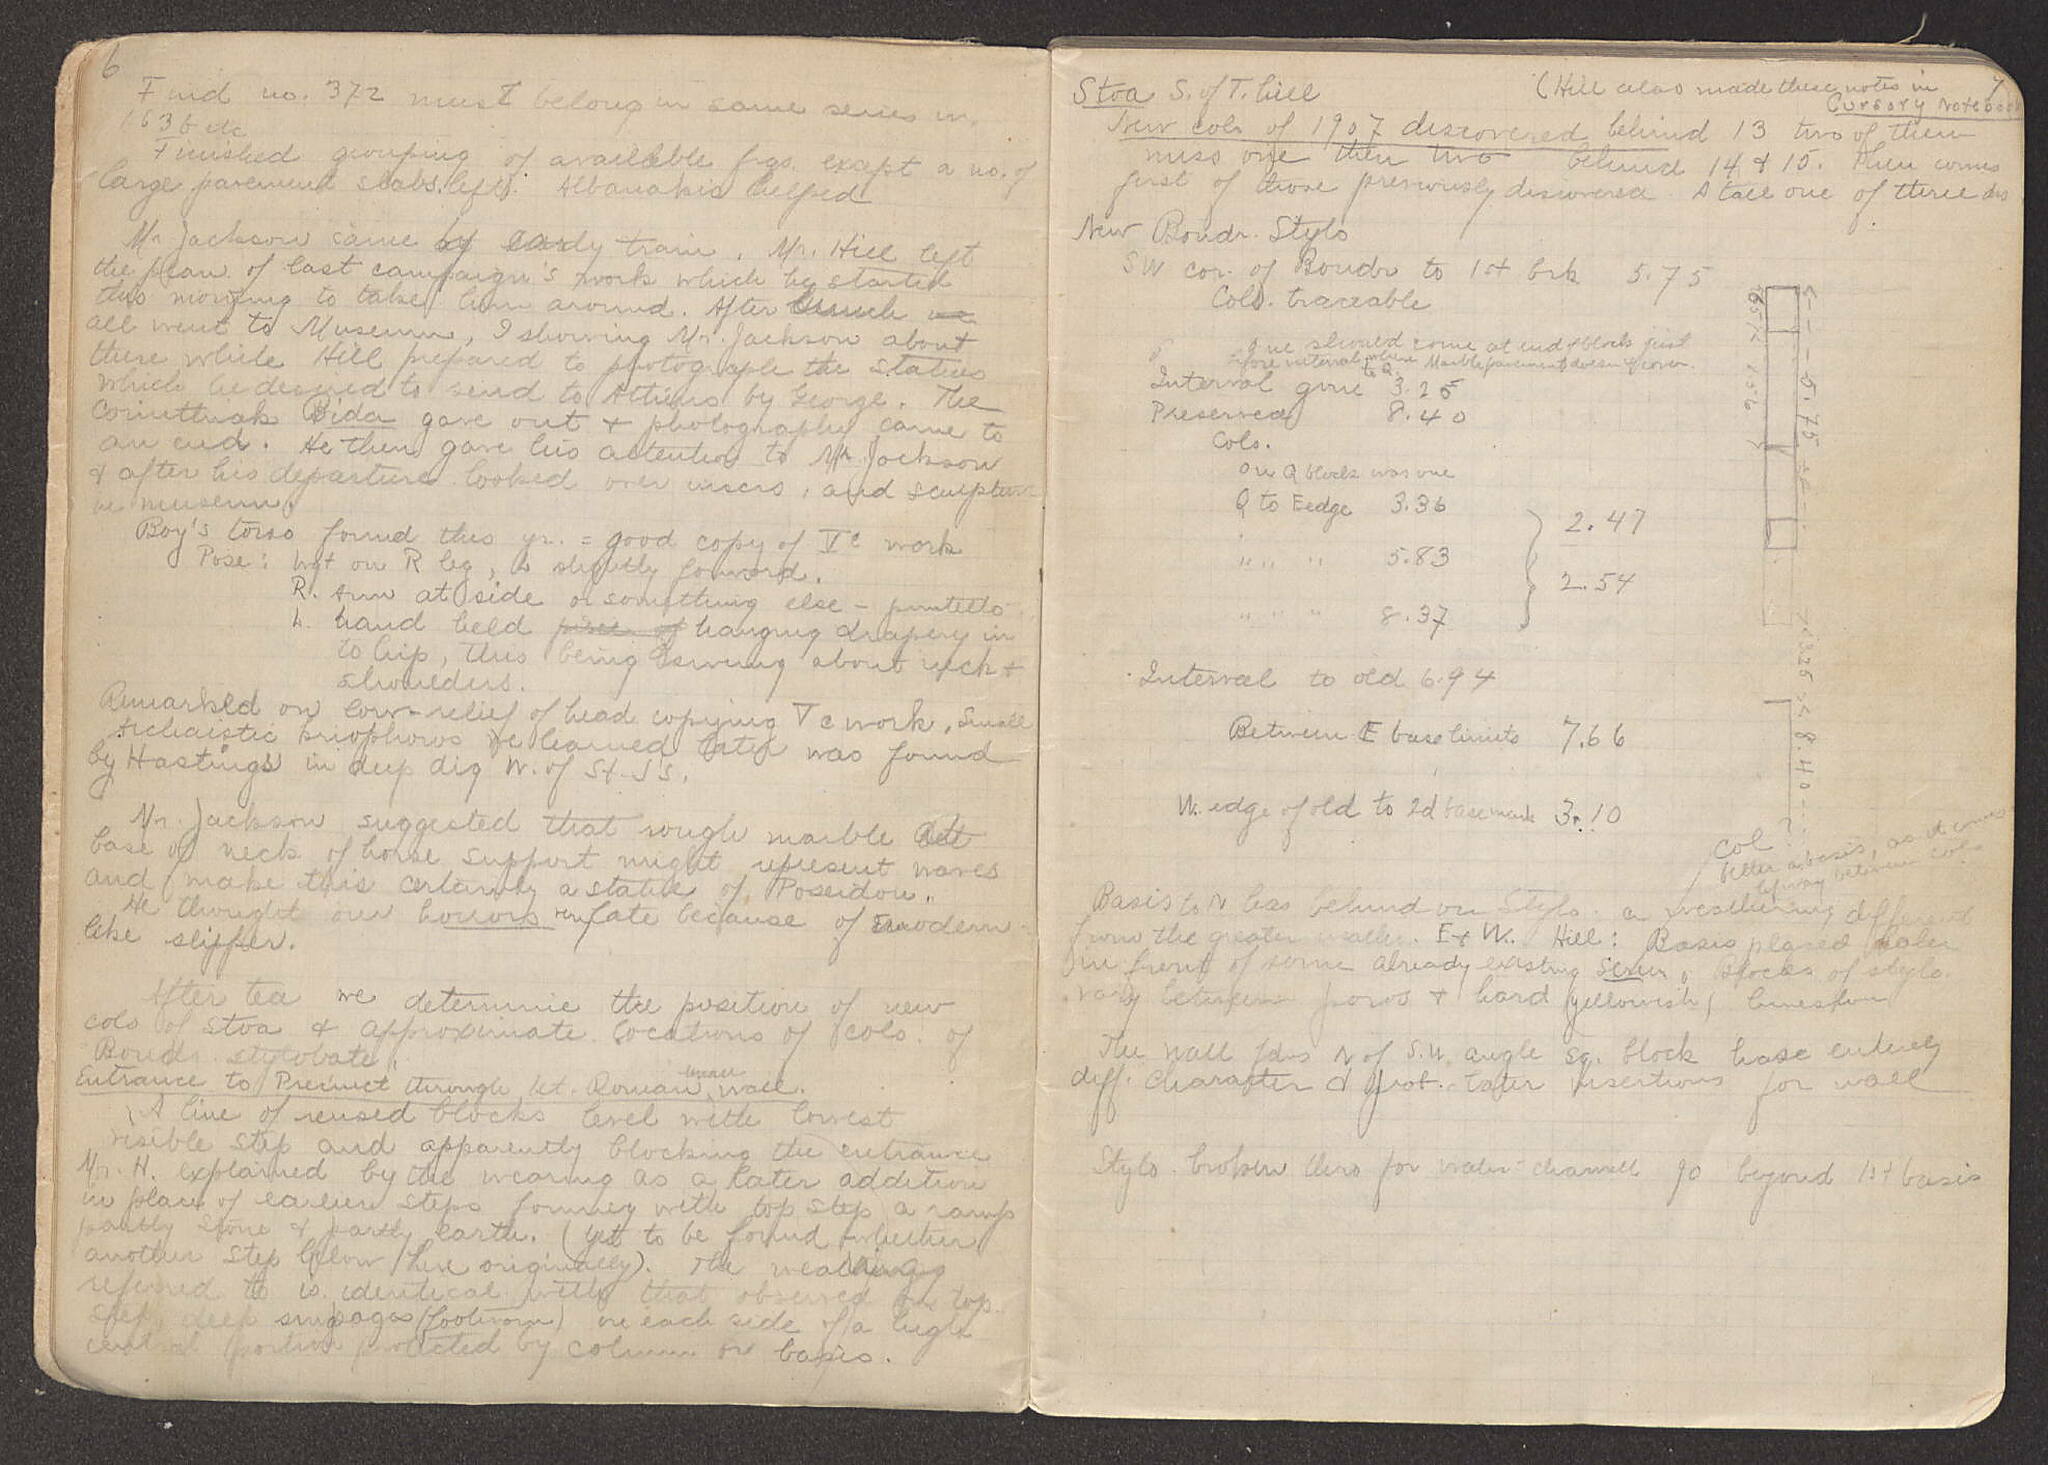 6
Find no. 372 must belong in same series w.
163 b etc
Finished grouping of available frgs. except a no. of
large pavement slabs left. Albanakis helped
Mr Jackson came by early train. Mr. Hill left
the plan of last campaign's work which he started
this morning to take him around. After lunch we
all went to Museum, I showing Mr. Jackson about
there while Hill prepared to photograph the statues
which he desired to send to Athens by George. The
Corinthiak Bida gave out & photography came to
an end. He then gave his attention to Mr. Jackson
& after his departure looked over inscrs. and sculpture
in museum.
Boy's torso found this yr. = good copy of Vc work
Pose: wgt on R leg, L slightly forward.
R. Arm at side or something else – puntello
L. hand held piece of hanging drapery in
to hip, this being swung about neck &
shoulders.
Remarked on low-relief of head copying Vc work. Small
Archaistic kriophoros he learned later was found
by Hastings in deep dig W. of St. J's.
Mr. Jackson suggested that rough marble at
base of neck of horse support might represent waves
and make this certainly a statue of Poseidon.
He thought our horrors very late because of modern-
like slipper.
After tea we determine the position of new
cols of stoa & approximate locations of cols. of
Boudr. stylobate.
Entrance to Precinct through let. Roman wall.
A line of reused blocks level with lowest
visible step and apparently blocking the entrance
Mr. H. explained by the wearing as a later addition
in place of earlier steps forming with top step a ramp
partly stone & partly earth. (Yet to be found whether
another step below here originally). The wearing
referred to is identical with that observed on top
step, deep (footworn) on each side of a high
central portion protected by column or basis.
7
Stoa S. of T. hill (Hill also made these notes in
Cursory Notebook
New cols of 1907 discovered behind 13 two of them
miss one then two behind 14 & 15. Then comes
first of those previously discovered. A tall one of three drs
New Boudr. Stylo
SW cor. of Boudr to 1st brk 5.75
Cols. traceable
One should come at end of block just
before interval where Marble pavement doesn't cover.
Interval gone 3.25
Preserved 8.40
Cols.
on Q block was one
Q to E edge 3.36
2.47
" " " 5.83
2.54
" " " 8.37
Interval to old 6.94
Between E base limits 7.66
W. edge of old to 2d base mark 3.10
.657
1.56
5.75
3.25
8.40
col?
better a basis, as it comes
between cols
Basis to N has behind on Stylo. a weathering different
from the greater weather. E & W. Hill: Basis placed later
in front of some already existing screen. Blocks of stylo.
vary between poros & hard (yellowish) limestone
The wall fdns N of S.W. angle sq. block base entirely
diff. character & prob. later insertions for wall
Stylo. broken thro for water-channel 90 beyond 1st basis